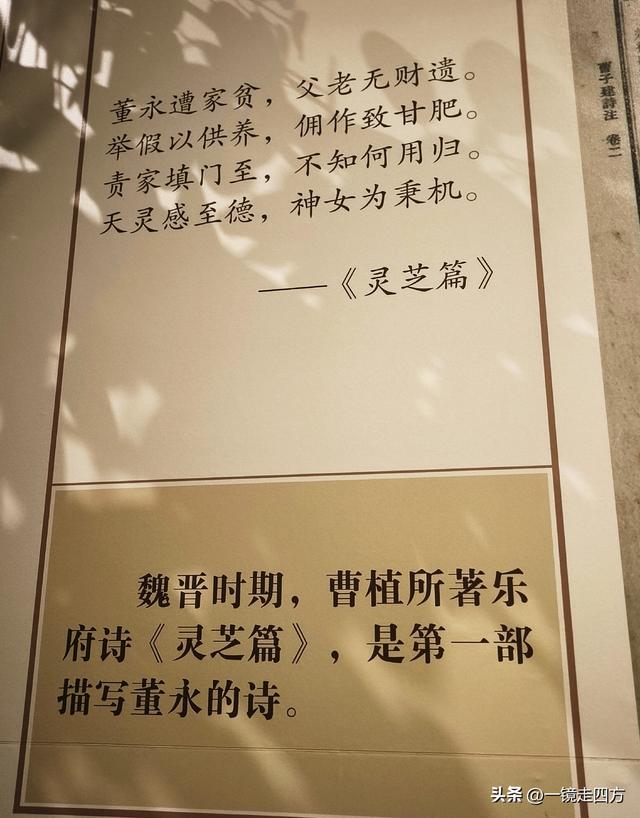 董永遭家贫，父老无财遗。
举假以供养，佣作致甘肥。
责家填门至，不知何用归。
天灵感至德，神女为秉机。
——《灵芝篇》
魏晋时期，曹植所著乐
府诗《灵芝篇》，是第一部
描写董永的诗。
曹子建詩注 卷二
头条 @一镜走四方